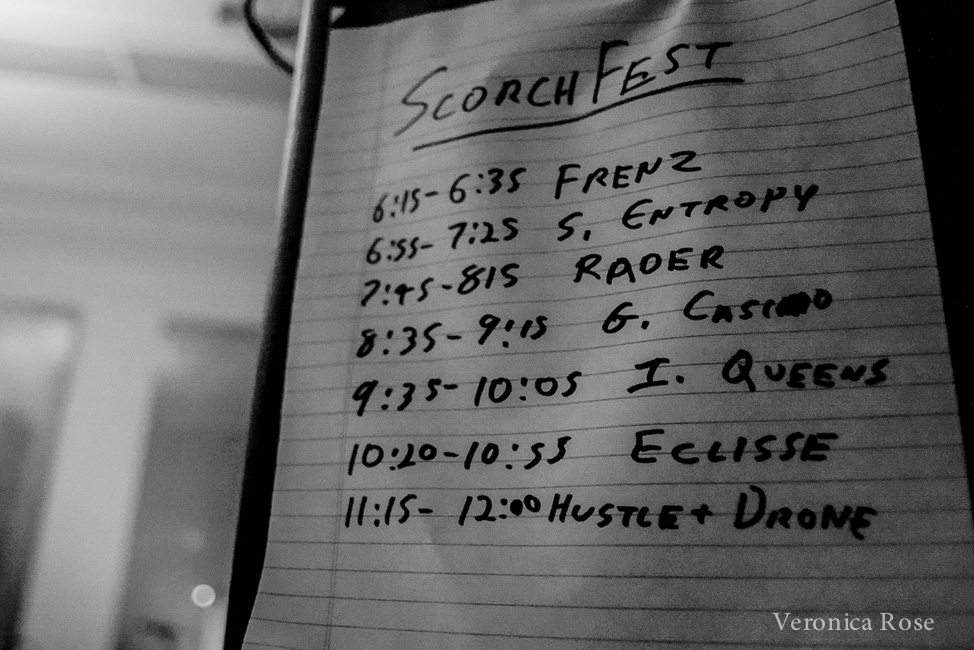 SCORCHFEST
6:15-6:35 FRENZ
6:55-7:25 S. ENTROPY
7:45-815 RADER
8:35-9:15 G. CASINO
9:35-10:05 I. QUEENS
10:20-10:55 ECLISSE
11:15-12:00 HUSTLE + DRONE
Veronica Rose